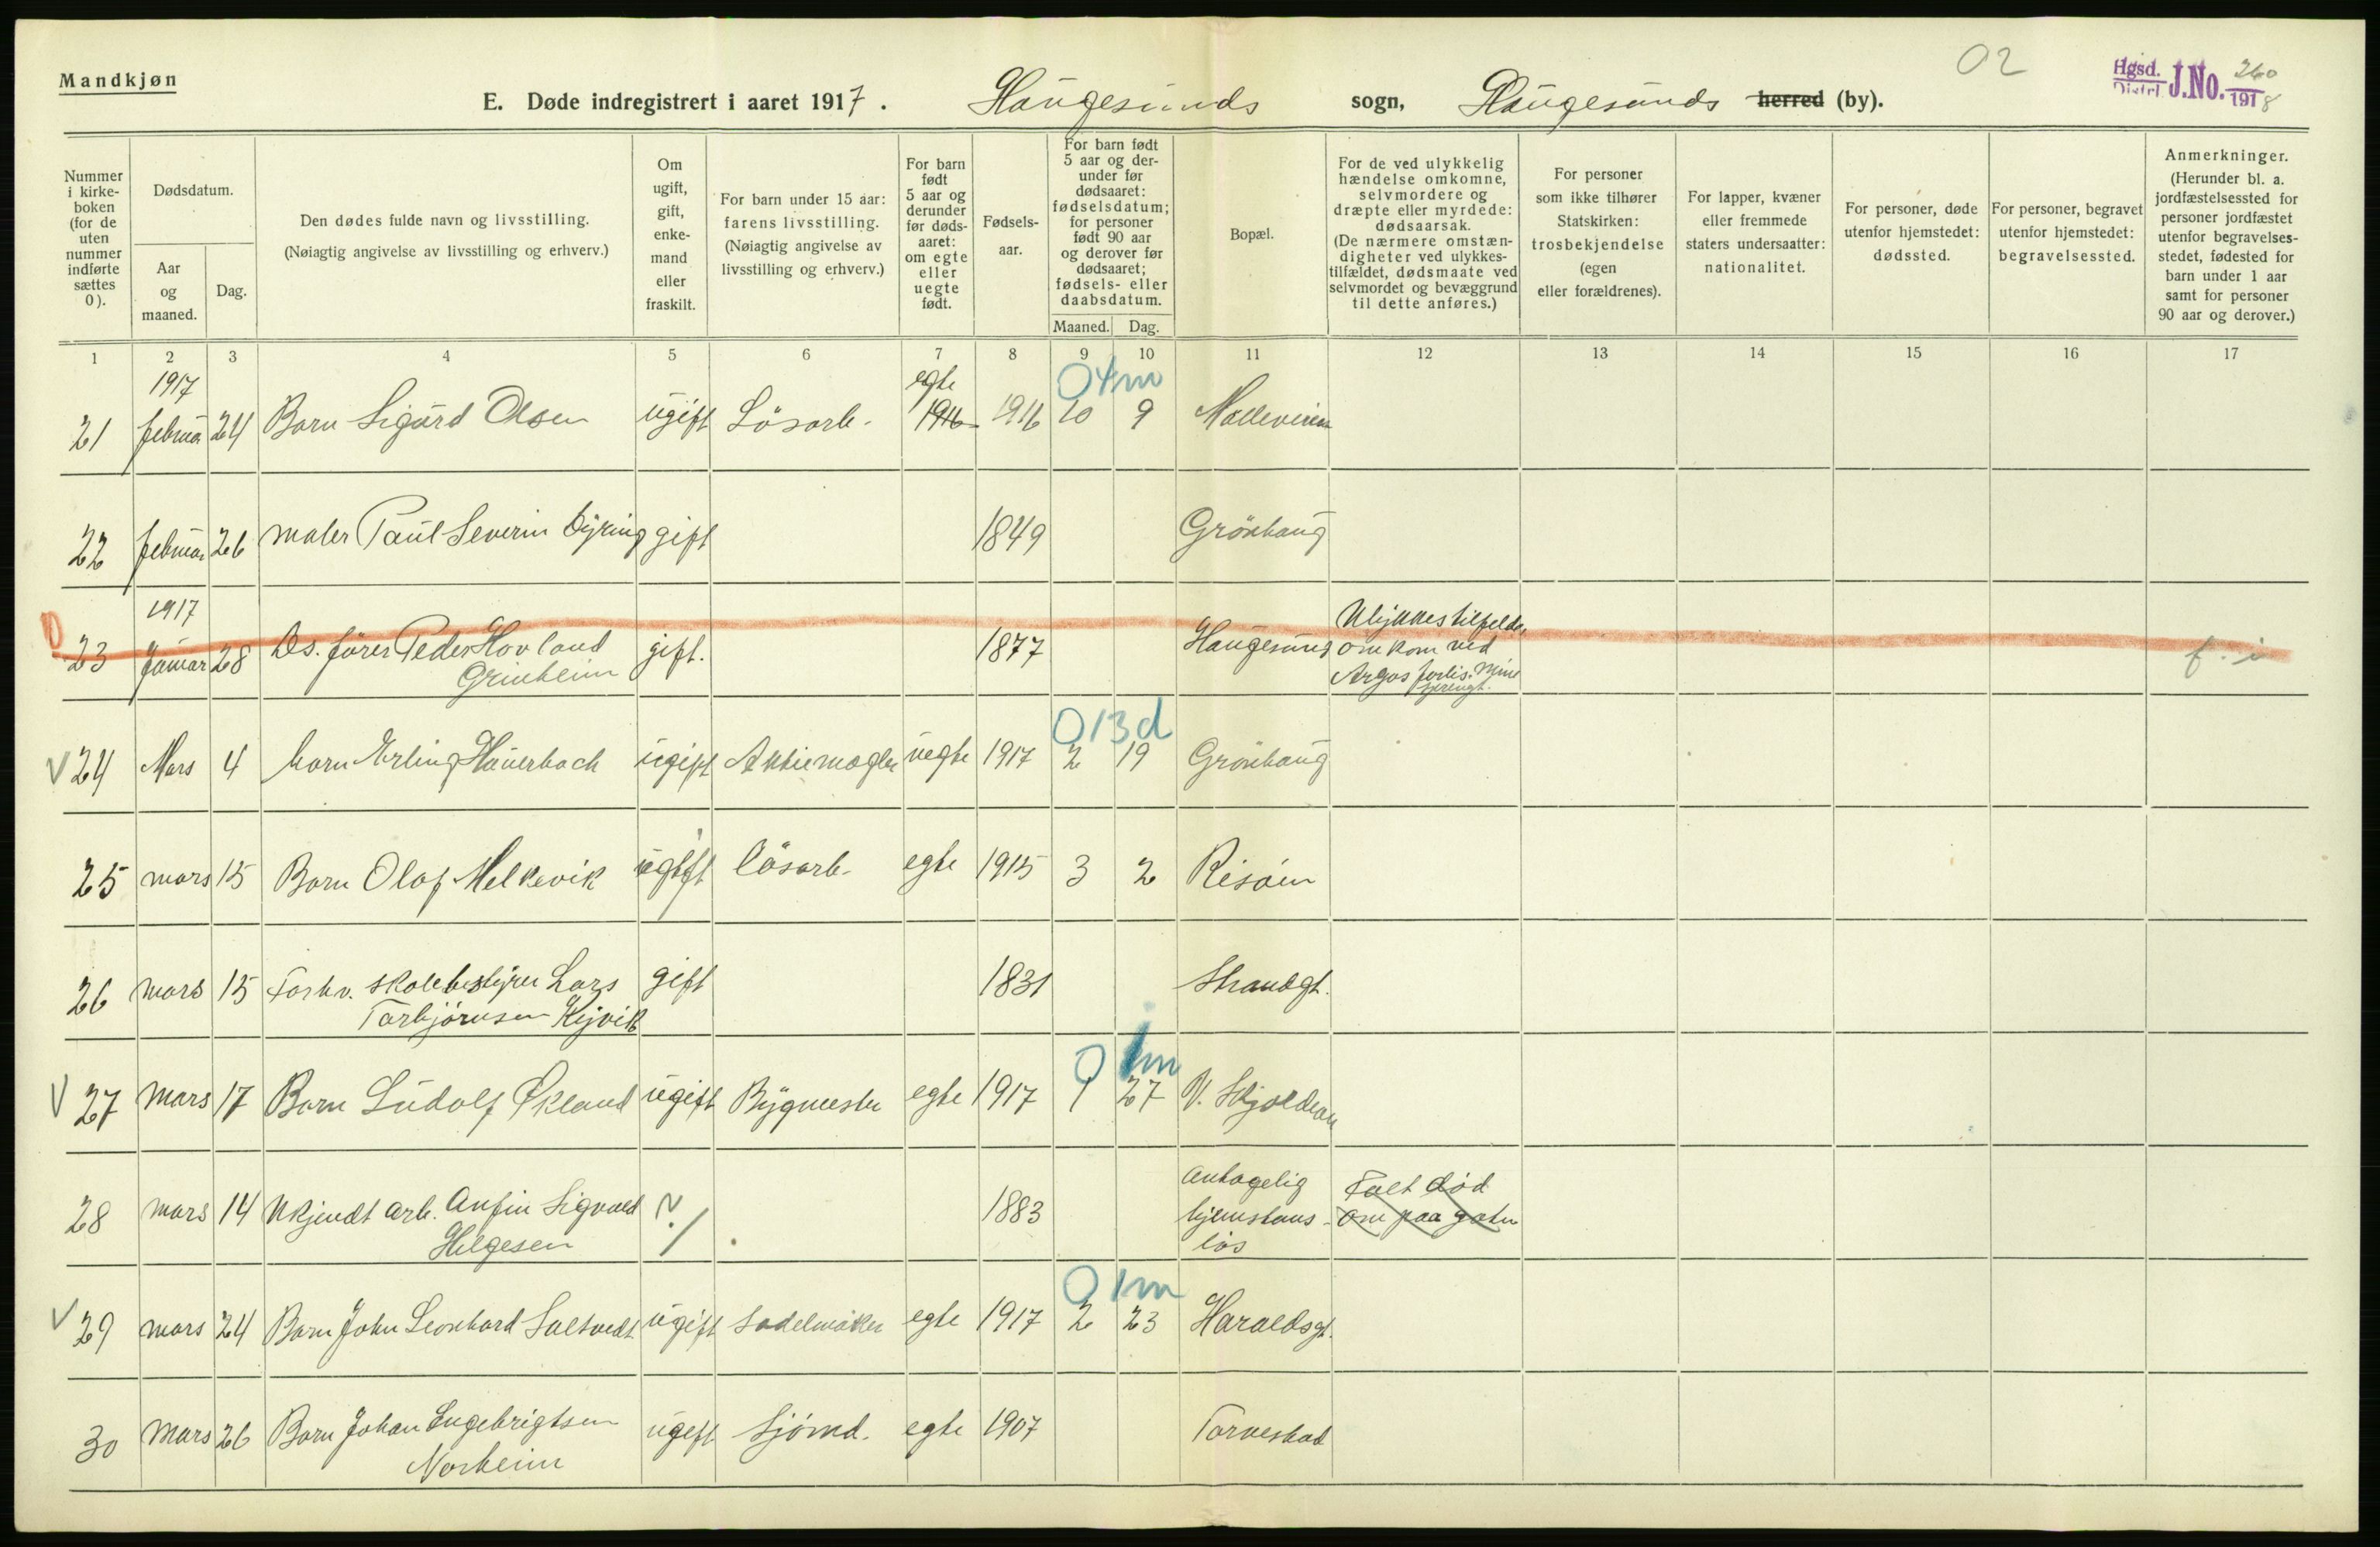 Mandkjøn
E. Døde indregistrert i aaret 1917. Haugesunds sogn, Haugesunds herred (by).
02
Hgsd. Distrl. J.No. 260 1918
Nummer i kirke- boken (for de uten nummer indførte sættes 0).
Dødsdatum.
Aar og maaned.
Dag.
Den dødes fulde navn og livsstilling. (Nøiagtig angivelse av livsstilling og erhverv.)
Om ugift, gift, enke- mand eller fraskilt.
For barn under 15 aar: farens livsstilling. (Nøiagtig angivelse av livsstilling og erhverv.)
For barn født 5 aar og derunder før døds- aaret: om egte eller uegte født.
Fødsels- aar.
For barn født 5 aar og der- under før dødsaaret: fødselsdatum; for personer født 90 aar og derover før dødsaaret; fødsels- eller daabsdatum.
Maaned. Dag.
Bopæl.
For de ved ulykkelig hændelse omkomne, selvmordere og dræpte eller myrdede: dødsaarsak. (De nærmere omstæn- digheter ved ulykkes- tilfældet, dødsmaate ved selvmordet og bevæggrund til dette anføres.)
For personer som ikke tilhører Statskirken: trosbekjendelse (egen eller forældrenes).
For lapper, kvæner eller fremmede staters undersaatter: nationalitet.
For personer, døde utenfor hjemstedet: dødssted.
For personer, begravet utenfor hjemstedet: begravelsessted.
Anmerkninger. (Herunder bl. a. jordfæstelsessted for personer jordfæstet utenfor begravelses- stedet, fødested for barn under 1 aar samt for personer 90 aar og derover.)
1 2 3 4 5 6 7 8 9 10 11 12 13 14 15 16 17
1917 egte 0 4m
21 februar 24 Barn Sigurd Olsen ugift Lösarb. 1916 1916 10 9
22 februar 26 maler Paul Severin Dyring gift 1849 Grönhaug
1917 Ulykkestilfelde,
23 Januar 28 Ds. förer Peder Hovland gift. 1877 Haugesund omkom ved f. i
Grinheim Argos forlis. Mine
sprengt.
0 13 d
V 24 Mars 4 barn Erling Hauerbach ugift Aktiemægler uegte 1917 2 19 Grönhaug
25 mars 15 Barn Olaf Melkevik ugift lösarb. egte 1915 3 2 Risöen
26 mars 15 Forhv. skolebestyrer Lars gift 1831 Strandgt.
Torbjörnsen Kyvik
0 1m
V 27 mars 17 Barn Ludolf Økland ugift Bygmester egte 1917 1 27 V. Skjoldan
antagelig Falt død
28 mars 14 Ukjendt arb. Anfin Sigvald ? 1883 hjemstans- om paa gaten
Helgesen lös
0 1m
V 29 mars 24 Barn John Leonhard Saltvedt ugift Sadelmaker egte 1917 2 23 Haraldsgt.
30 Mars 26 Barn Johan Engebrigtsen ugift Sjömd. egte 1907 Torvestad
Norheim